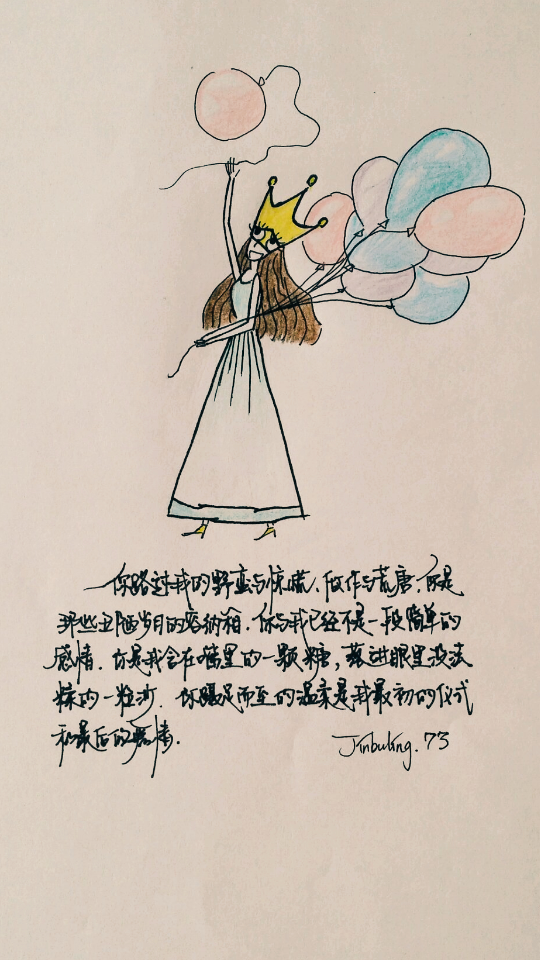 你路过我的野蛮与惊慌.做作与荒唐.你是
那些丑陋岁月的容纳箱.你与我已经不是一段简单的
感情.你是我含在嘴里的一颗糖,落进眼里没法
揉的一粒沙.你蹑足而至的温柔是我最初的仪式
和最后的表情.
Jinbuling.73